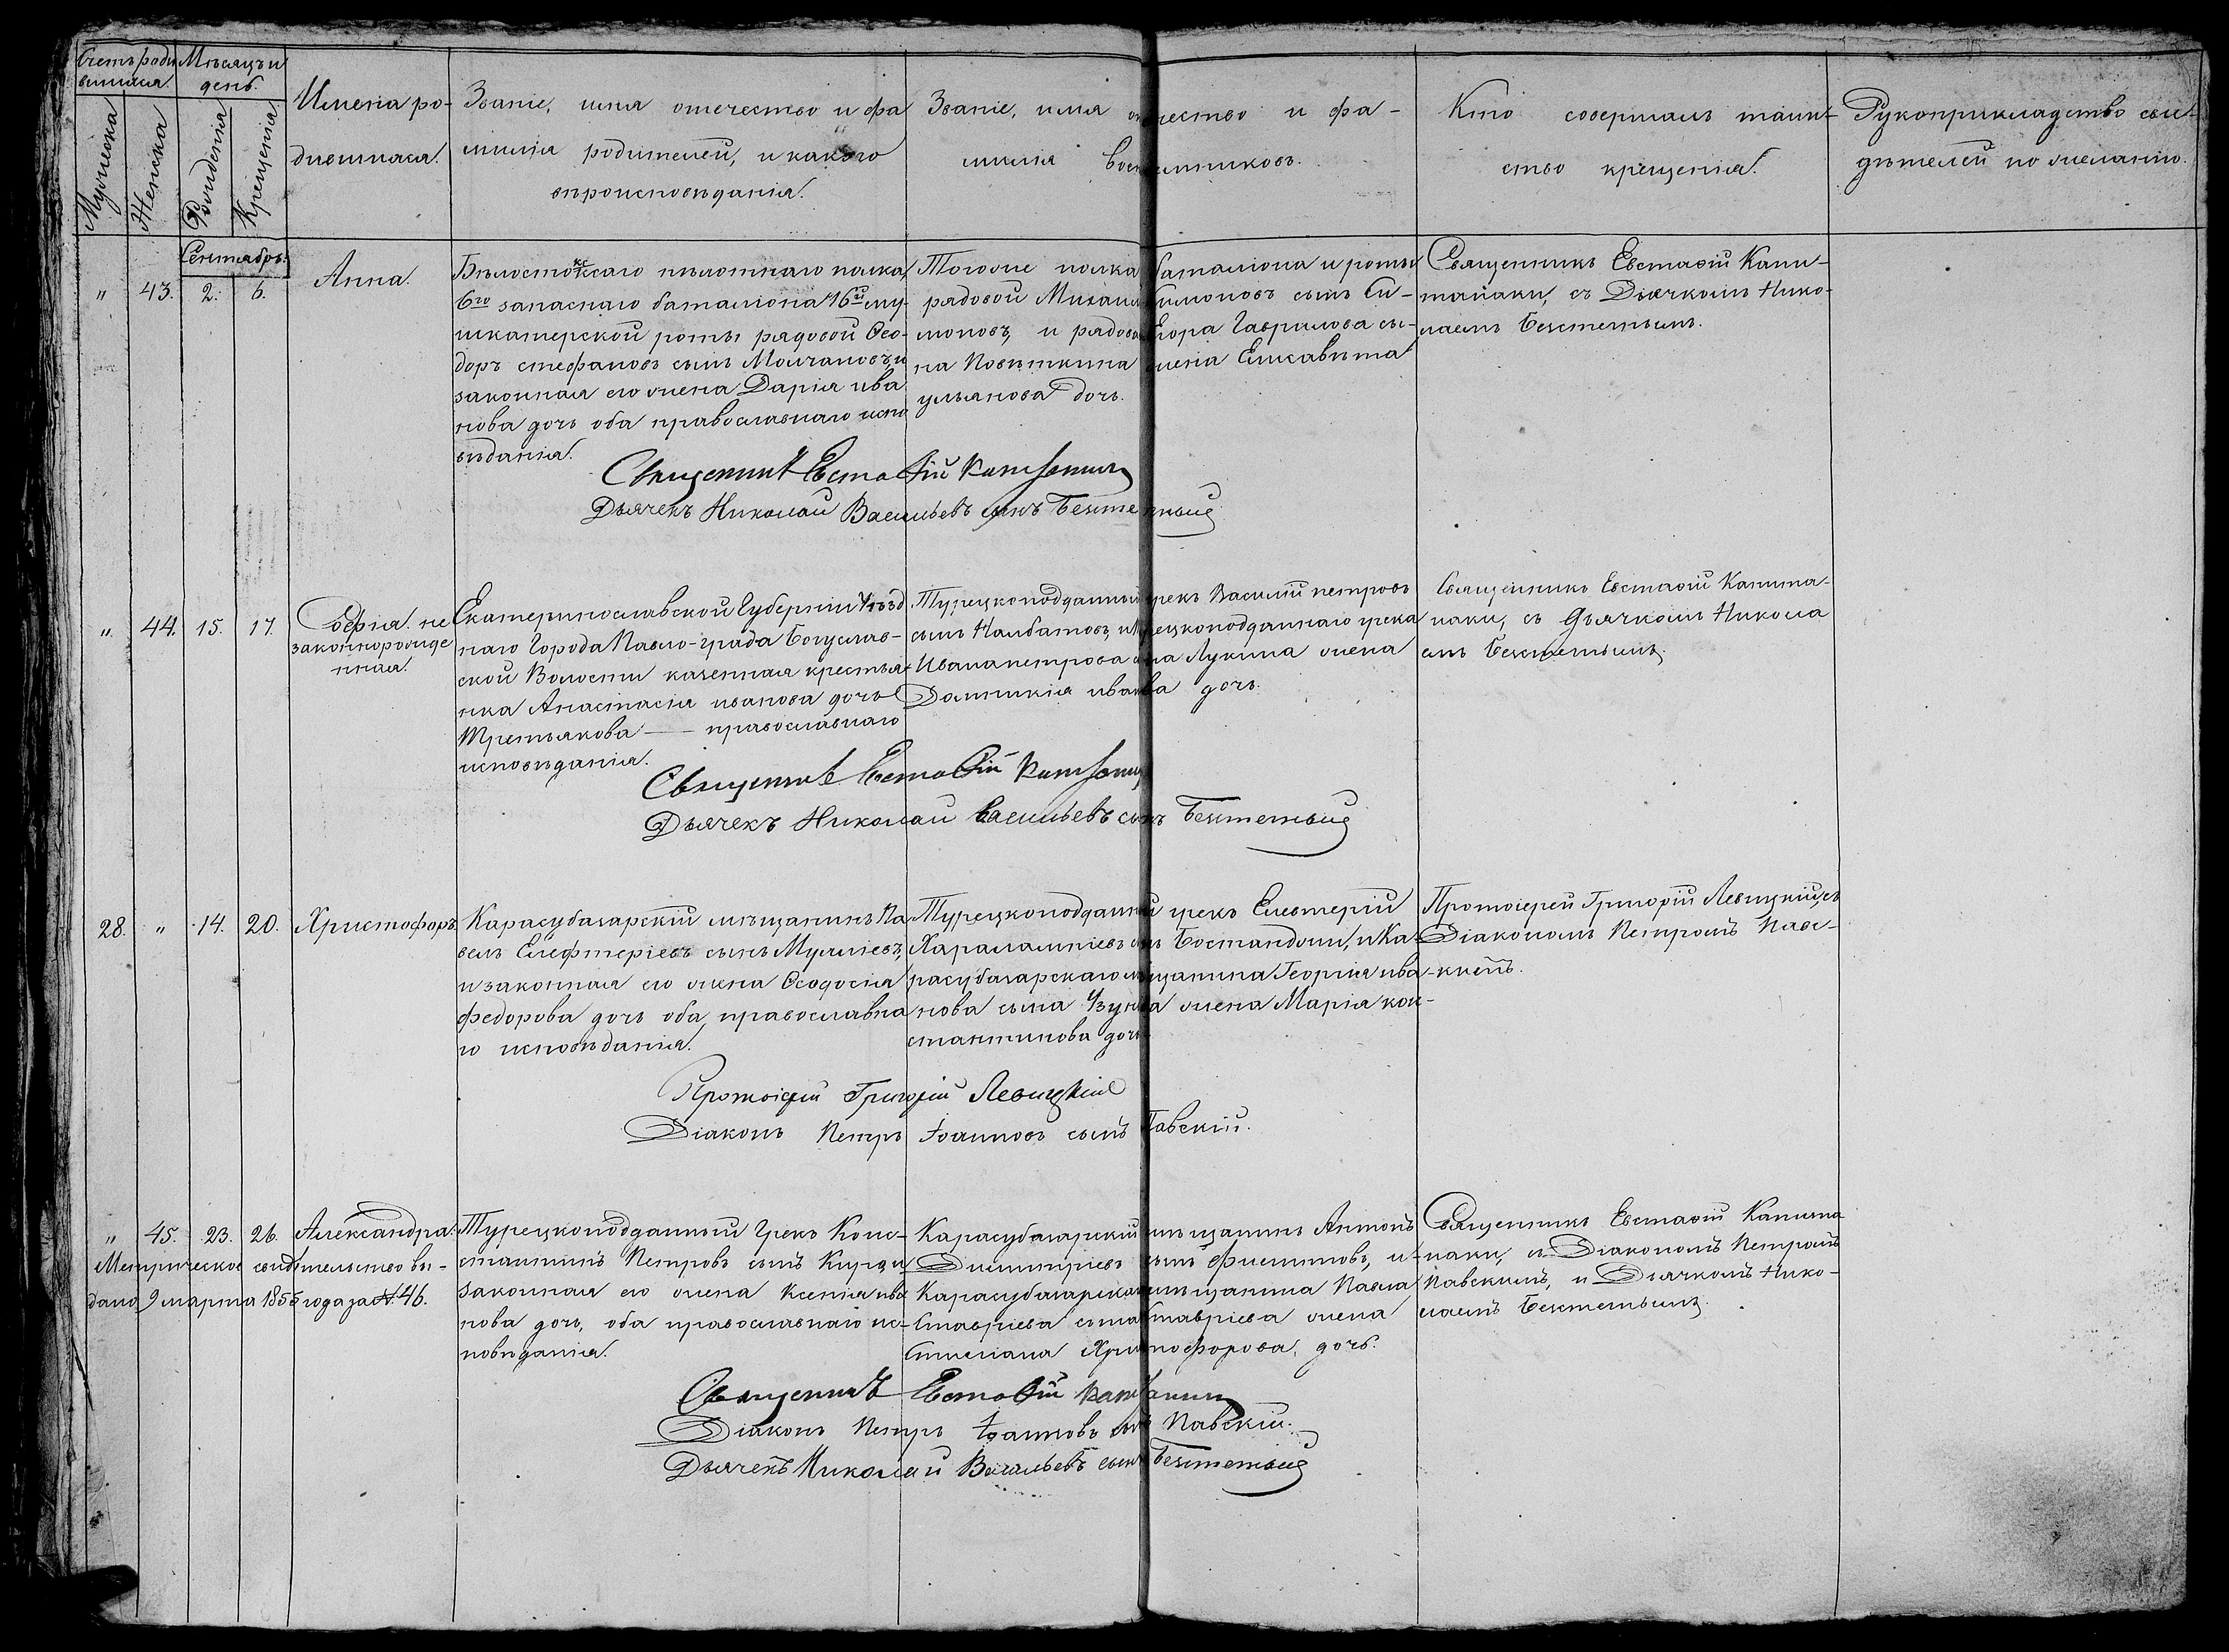 Счетъ роди Мѣсяцъ и
вшихся. день.
Мужеска
Женска
Рожденія
Крещенія
Имена ро-
дившихся.
Званіе, имя отечество и фа
милія родителей, и какого
вѣроисповѣданія.
Званіе, имя отчество и фа-
милія воспріемниковъ.
Кто совершалъ таин-
ство крещенія.
Рукоприкладство сви-
дѣтелей по желанію.
Сентябрь.
" 43. 2. 6. Анна.
Бѣлостокскаго пѣхотнаго полка
6го запаснаго баталіона 16й му-
шкатерской роты рядовой Ѳео-
доръ стефановъ сынъ Молчановъ, и
законная его жена Дарія ива
нова дочь оба православнаго испо
вѣданія.
Тогоже полка баталіона и роты
рядовой Михаилъ Симоновъ сынъ Си-
моновъ, и рядоваго Егора Гаврилова сы-
на Повѣткина жена Елисавѣта
ульянова дочь.
Священникъ Евстафій Капи-
танаки, съ Дьячкомъ Нико-
лаемъ Бекетьевымъ.
Священникъ Евстафій
Дьячекъ Николай Васильевъ сынъ
" 44. 15. 17. Софія. не
законнорожде
нная.
Екатеринославской Губерніи Уѣзд
наго Города Павло-града Богуслав-
ской Волости казенная крестья
нка Анастасія иванова дочь
Третьякова — православнаго
исповѣданія.
Турецкоподданный грекъ Василій петровъ
сынъ Налбатовъ, и турецкоподданнаго грека
Ивана петрова сына Лукина жена
Домникія иванова дочь.
Священникъ Евстафій Капита-
наки, съ Дьячкомъ Никола
емъ
Священникъ Евстафій
Дьячекъ Николай Васильевъ сынъ
28. " 14. 20. Христофоръ
Карасубазарскій мѣщанинъ Па
велъ Елефтеріевъ сынъ Мумжіевъ,
и законная его жена Ѳеодосія
федорова дочь оба православна
го исповѣданія.
Турецкоподданный грекъ Елевтерій
Харалампіевъ сынъ Бостанджи, и Ка-
расубазарскаго мѣщанина Георгія ива-
нова сына Узунова жена Марія кон-
стантинова дочь.
Протоіерей Григорій Левицкій, съ
Діакономъ Петромъ Павс-
кимъ.
Протоіерей Григорій Левицкій
Діаконъ Петръ Іоанновъ сынъ Павскій.
" 45. 23. 26. Александра.
Метрическое свидѣтельство вы-
дано 9 марта 1855 года за №. 46.
Турецкоподданный Грекъ Конс-
стантинъ Петровъ сынъ и
законная его жена Ксенія ива
нова дочь, оба православнаго ис-
повѣданія.
Карасубазарскій мѣщанинъ Антонъ
Димитріевъ сынъ и
Карасубазарскаго мѣщанина Павла
Ставріева сына Ставріева жена
Стиліана Христофорова дочь.
Священникъ Евстафій Капита
наки, съ Діакономъ Петромъ
Павскимъ, и Дьячкомъ Нико-
лаемъ
Священникъ Евстафій
Діаконъ Петръ Іоанновъ сынъ Павскій.
Дьячекъ Николай Васильевъ сынъ